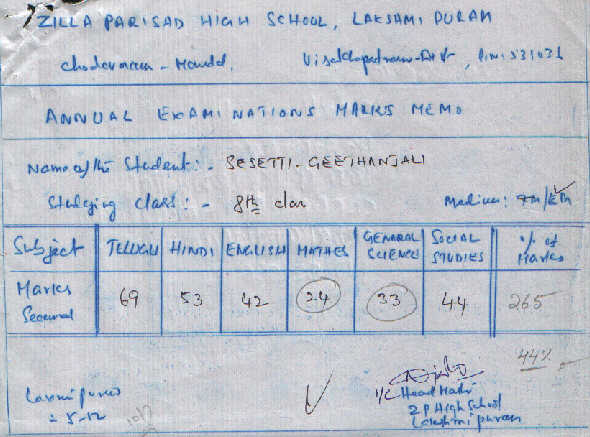 ZILLA PARISAD HIGH SCHOOL, LAKSHMI PURAM
Chodavaram - Mandal, Visakhapatnam-Dist, Pin: 531031
ANNUAL EXAMINATIONS MARKS MEMO
Name of the Student: - SESETTI. GEETHANJALI
Studying class: - 8th class Medium: TM/EM
Subject TELUGU HINDI ENGLISH MATHES GENARAL SCIENCE SOCIAL STUDIES % of Marks
Marks Secured 69 53 42 24 33 44 265
44%
I/C Head Master
Z P High School
Lakshmi puram